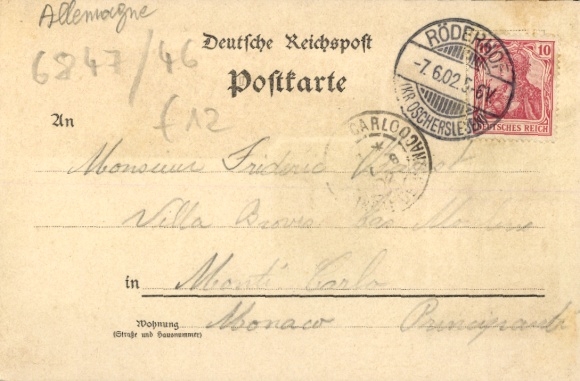 Allemagne
6847/46
f 12
Deutsche Reichspost
Postkarte
RÖDERHOF
-7.6.02.5-6V
(KR OSCHERSLEBEN)
10
DEUTSCHES REICH
CARLO
MONACO
An
Monsieur Frideric
Villa
in Monté Carlo
Wohnung
(Straße und Hausnummer)
Monaco Principauté